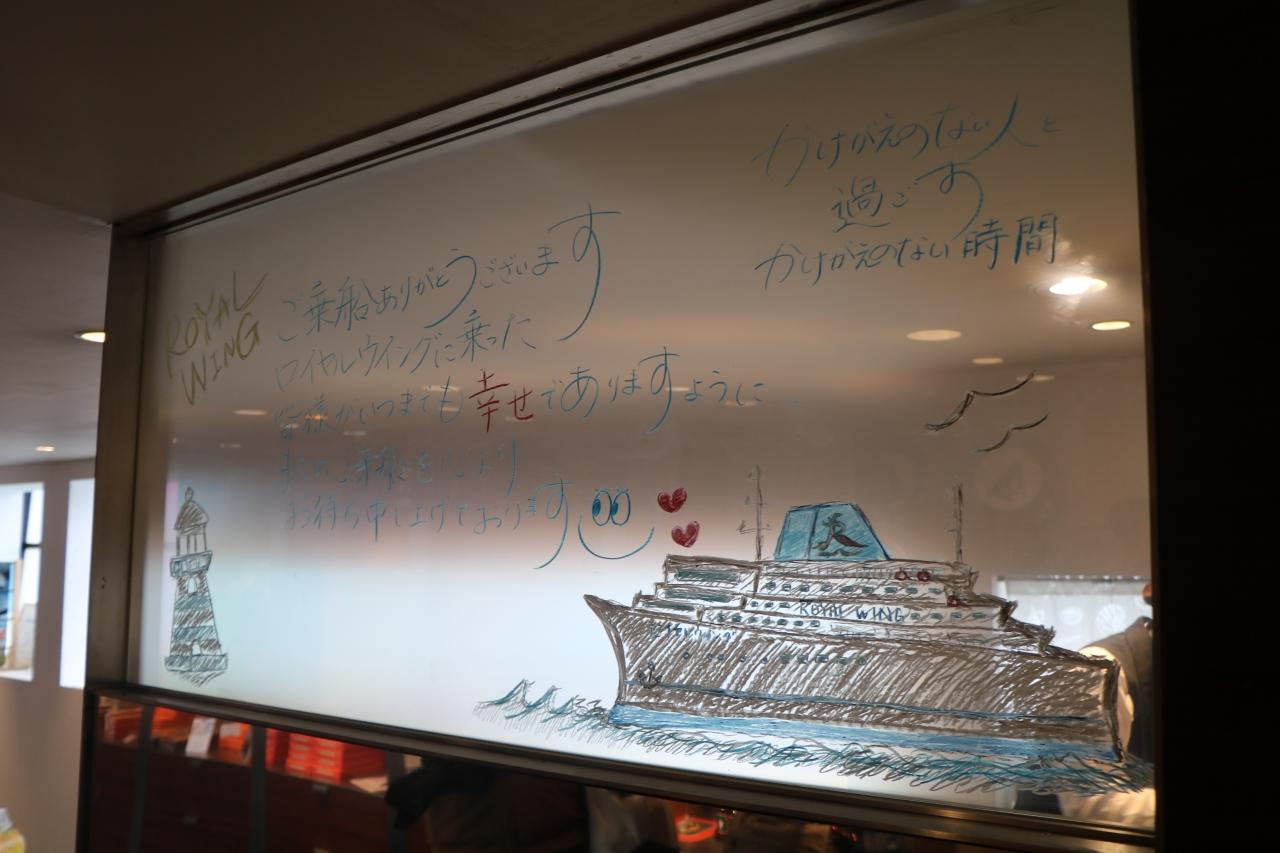 かけがえのない人と
過ごす
かけがえのない時間
ROYAL
WING
ご乗船ありがとうございます
ロイヤルウイングに乗った
皆様がいつまでも幸せでありますように
またのご乗船を心より
お待ち申し上げております
ROYAL WING